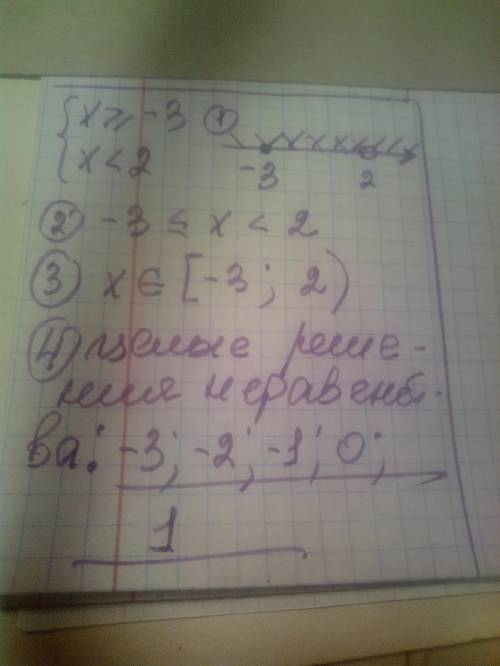 { x ⩾ -3 ①
x < 2
-3 2
② -3 ≤ x < 2
③ x ∈ [-3; 2)
④ целые реше-
ния неравенст-
ва: -3; -2; -1; 0;
1